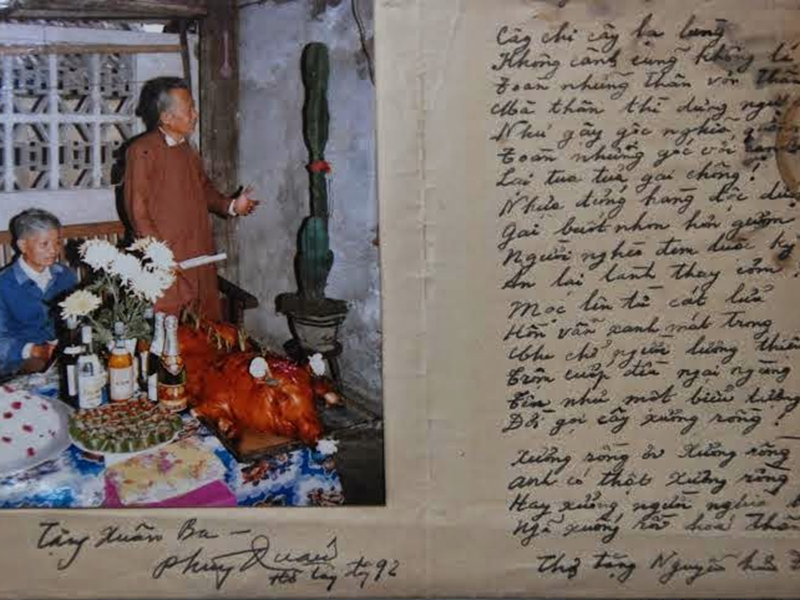 Cây chi cây lạ lùng
Không cành cũng không lá
Toàn những thân với thân
Mà thân thì đứng
Như gậy gộc nghĩa quân
Toàn những gốc với
Lại tua tủa gai chông!
Nhựa đắng hàng độc dược
Gai buốt nhọn hơn gươm
Người nghèo đem luộc kỹ
Ăn lại lành thay cơm!
Mọc lên từ cát lửa
Hồn vẫn xanh mát trong
Che chở người lương thiện
Trộm cướp đến ngại ngùng
Tên như một biểu tượng
Đời gọi cây xương rồng!
Xương rồng ơi Xương rồng
Anh có thật xương rồng
Hay xương người nghĩa
Ngã xuống rồi hoá thân
Thơ tặng Nguyễn hữu
Tặng Xuân Ba -
Phùng Quán
Hồ Tây 92